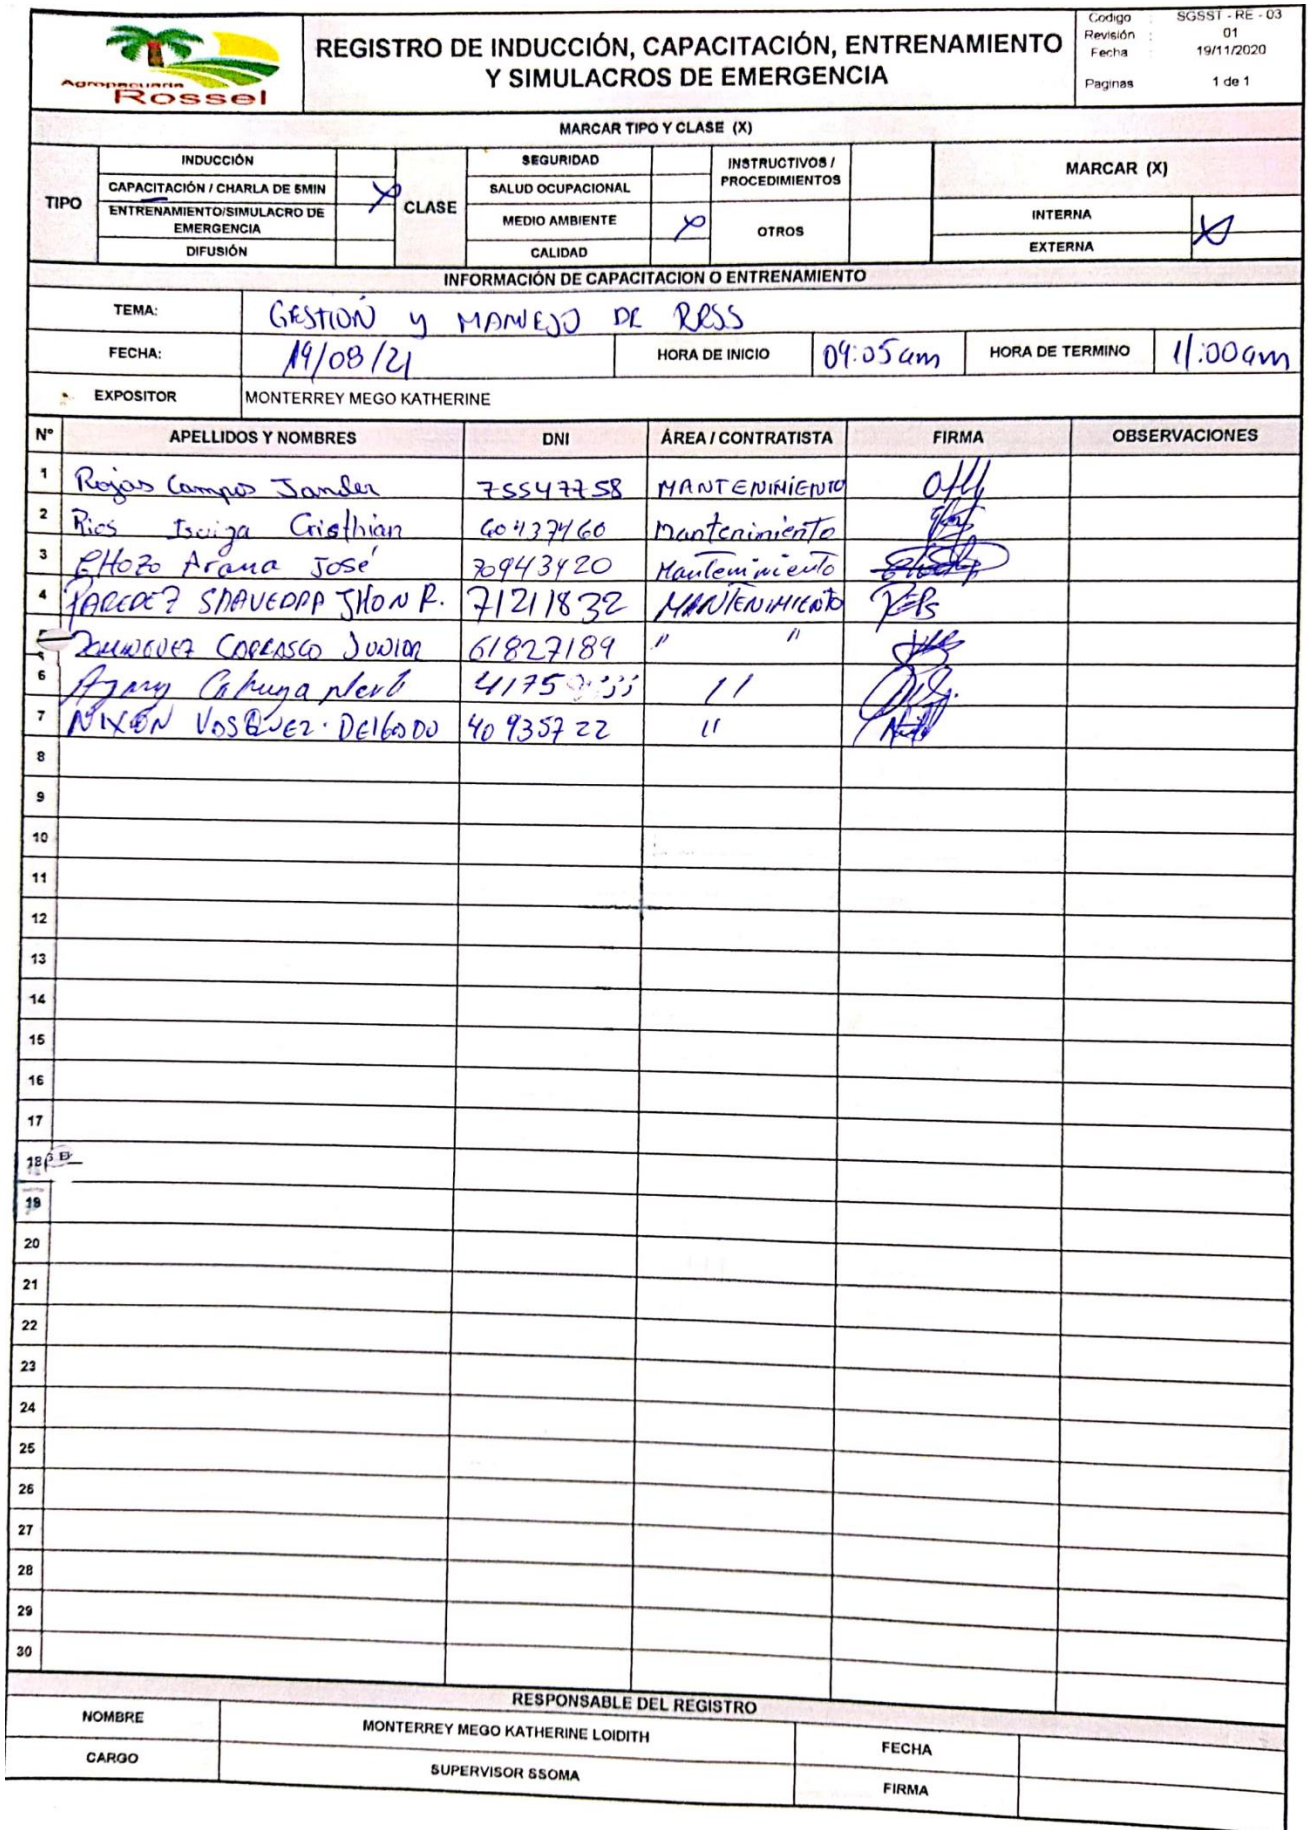 Agropecuaria
Rossel
REGISTRO DE INDUCCIÓN, CAPACITACIÓN, ENTRENAMIENTO
Y SIMULACROS DE EMERGENCIA
Codigo : SGSST - RE - 03
Revisión : 01
Fecha : 19/11/2020
Paginas 1 de 1
MARCAR TIPO Y CLASE (X)
TIPO
INDUCCIÓN
CAPACITACIÓN / CHARLA DE 5MIN X
ENTRENAMIENTO/SIMULACRO DE
EMERGENCIA
DIFUSIÓN
CLASE
SEGURIDAD
SALUD OCUPACIONAL
MEDIO AMBIENTE X
CALIDAD
INSTRUCTIVOS /
PROCEDIMIENTOS
OTROS
MARCAR (X)
INTERNA X
EXTERNA
INFORMACIÓN DE CAPACITACION O ENTRENAMIENTO
TEMA: GESTIÓN y MANEJO DE RRSS
FECHA: 19/08/21 HORA DE INICIO 09:05am HORA DE TERMINO 11:00am
EXPOSITOR MONTERREY MEGO KATHERINE
N° APELLIDOS Y NOMBRES DNI ÁREA / CONTRATISTA FIRMA OBSERVACIONES
1 Rojas Campos Jander 75547758 MANTENIMIENTO
2 Rios Isuiza Cristhian 60437460 Mantenimiento
3 Arana José 70943420 Mantenimiento
4 PAREDEZ SAAVEDRA JHON R. 71211832 MANTENIMIENTO
5 DOMINGUEZ CARRASCO JUNIOR 61827189 " "
6 Cahuaza 41759 "
7 NIXON VASQUEZ DELGADO 40935722 "
8
9
10
11
12
13
14
15
16
17
18
19
20
21
22
23
24
25
26
27
28
29
30
RESPONSABLE DEL REGISTRO
NOMBRE MONTERREY MEGO KATHERINE LOIDITH FECHA
CARGO SUPERVISOR SSOMA FIRMA